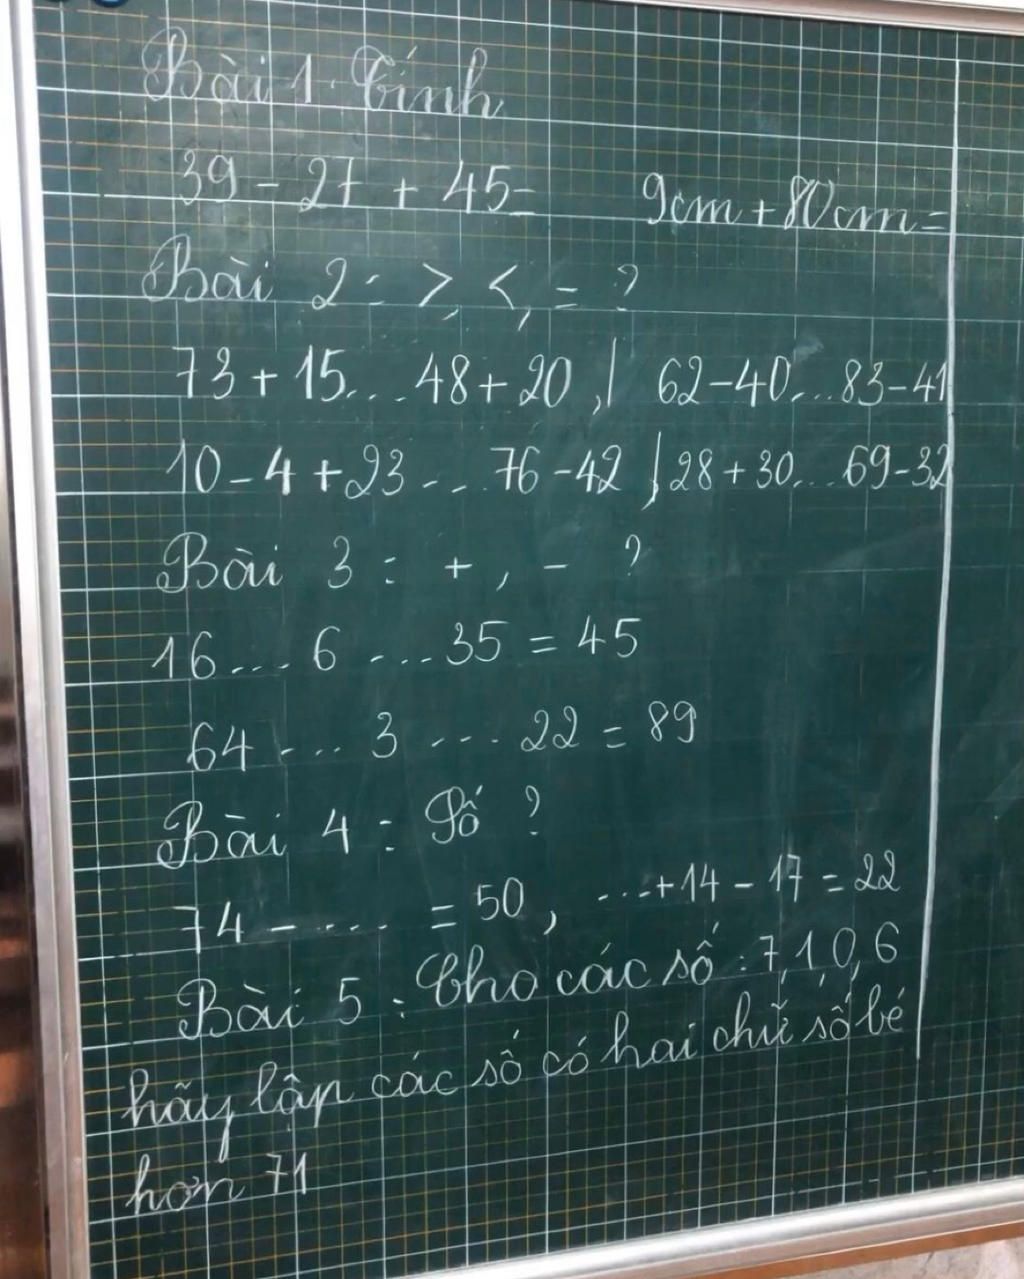 Bài 1. Tính
39 - 27 + 45 = 9cm + 80cm =
Bài 2 : >, <, = ?
73 + 15... 48 + 20 , | 62 - 40...83 - 41
10 - 4 + 23 ... 76 - 42 | 28 + 30... 69 - 32
Bài 3 : + , - ?
16 .... 6 .... 35 = 45
64 .... 3 .... 22 = 89
Bài 4 : Số ?
74 - ..... = 50 , ....+ 14 - 17 = 22
Bài 5 : Cho các số : 7, 1, 0, 6
hãy lập các số có hai chữ số bé
hơn 71